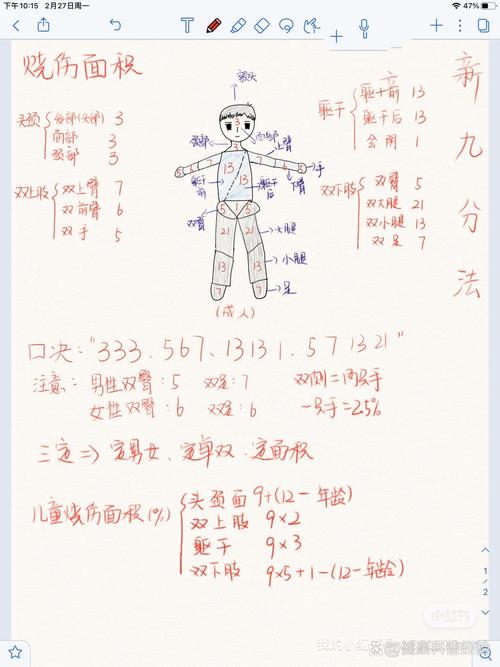 下午10:15 2月27日周一
47%
烧伤面积
新九分法
发头
头颈
发部(头部) 3
面部 3
颈部 3
双上肢
双上臂 7
双前臂 6
双手 5
躯干
躯干前 13
躯干后 13
会阴 1
双下肢
双臀 5
双大腿 21
双小腿 13
双足 7
颈部
面部
上臂
手
下臂
躯干前
躯干后
双臀
大腿
小腿
足
3
3
5 6 7 13 7 6 5
13
5 1 5
21 21
13 13
7 7
(成人)
口决："333、567、13131、571321"
注意：男性双臀：5 双足：7 双侧=两只手
女性双臀：6 双足：6 一只手=2.5%
三定⇒定男女、定单双、定面积
儿童烧伤面积(%)
头颈面 9+(12-年龄)
双上肢 9×2
躯干 9×3
双下肢 9×5+1-(12-年龄)
1
2
小红书
健康科普经验